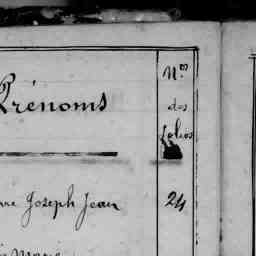 Prénoms
Nos
des
folios
Joseph Jean 24